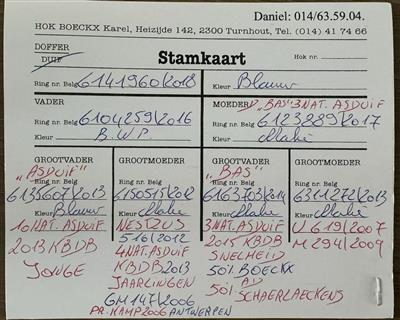 Daniel: 014/63.59.04.
HOK BOECKX Karel, Heizijde 142, 2300 Turnhout, Tel. (014) 41 74 66
DOFFER
DUIF
Stamkaart
Hok nr.
Ring nr. Belg 6141960/2018
Kleur Blauw
VADER
Ring nr. Belg 6104259/2016
Kleur B.W.P.
MOEDER D, "BAS" 3 NAT. ASDUIF
Ring nr. Belg 6123889/2017
Kleur
GROOTVADER
"ASDUIF"
Ring nr. Belg
6135607/2013
Kleur Blauw
10 NAT. ASDUIF
2013 KBDB
JONGE
GROOTMOEDER
Ring nr. Belg
6150515/2012
Kleur
NESTZUS
516/2012
4 NAT. ASDUIF
KBDB 2013
JAARLINGEN
GM 147/2006
PR. KAMP 2006 ANTWERPEN
GROOTVADER
"BAS"
Ring nr. Belg
6163703/2014
Kleur
3 NAT. ASDUIF
2015 KBDB
SNELHEID
50% BOECKX
50% AD SCHAERLAECKENS
GROOTMOEDER
Ring nr. Belg
6311272/2013
Kleur
U 619/2007
M 294/2009